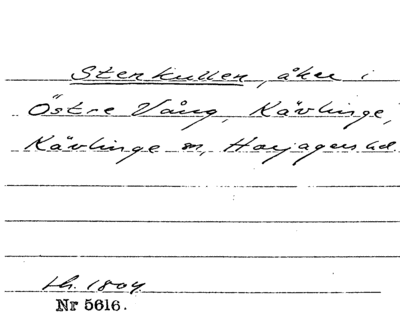 Stenkullen, åker i
Östre Vång, Kävlinge,
Kävlinge sn, Harjagers hd
lh. 1804
Nr 5616.